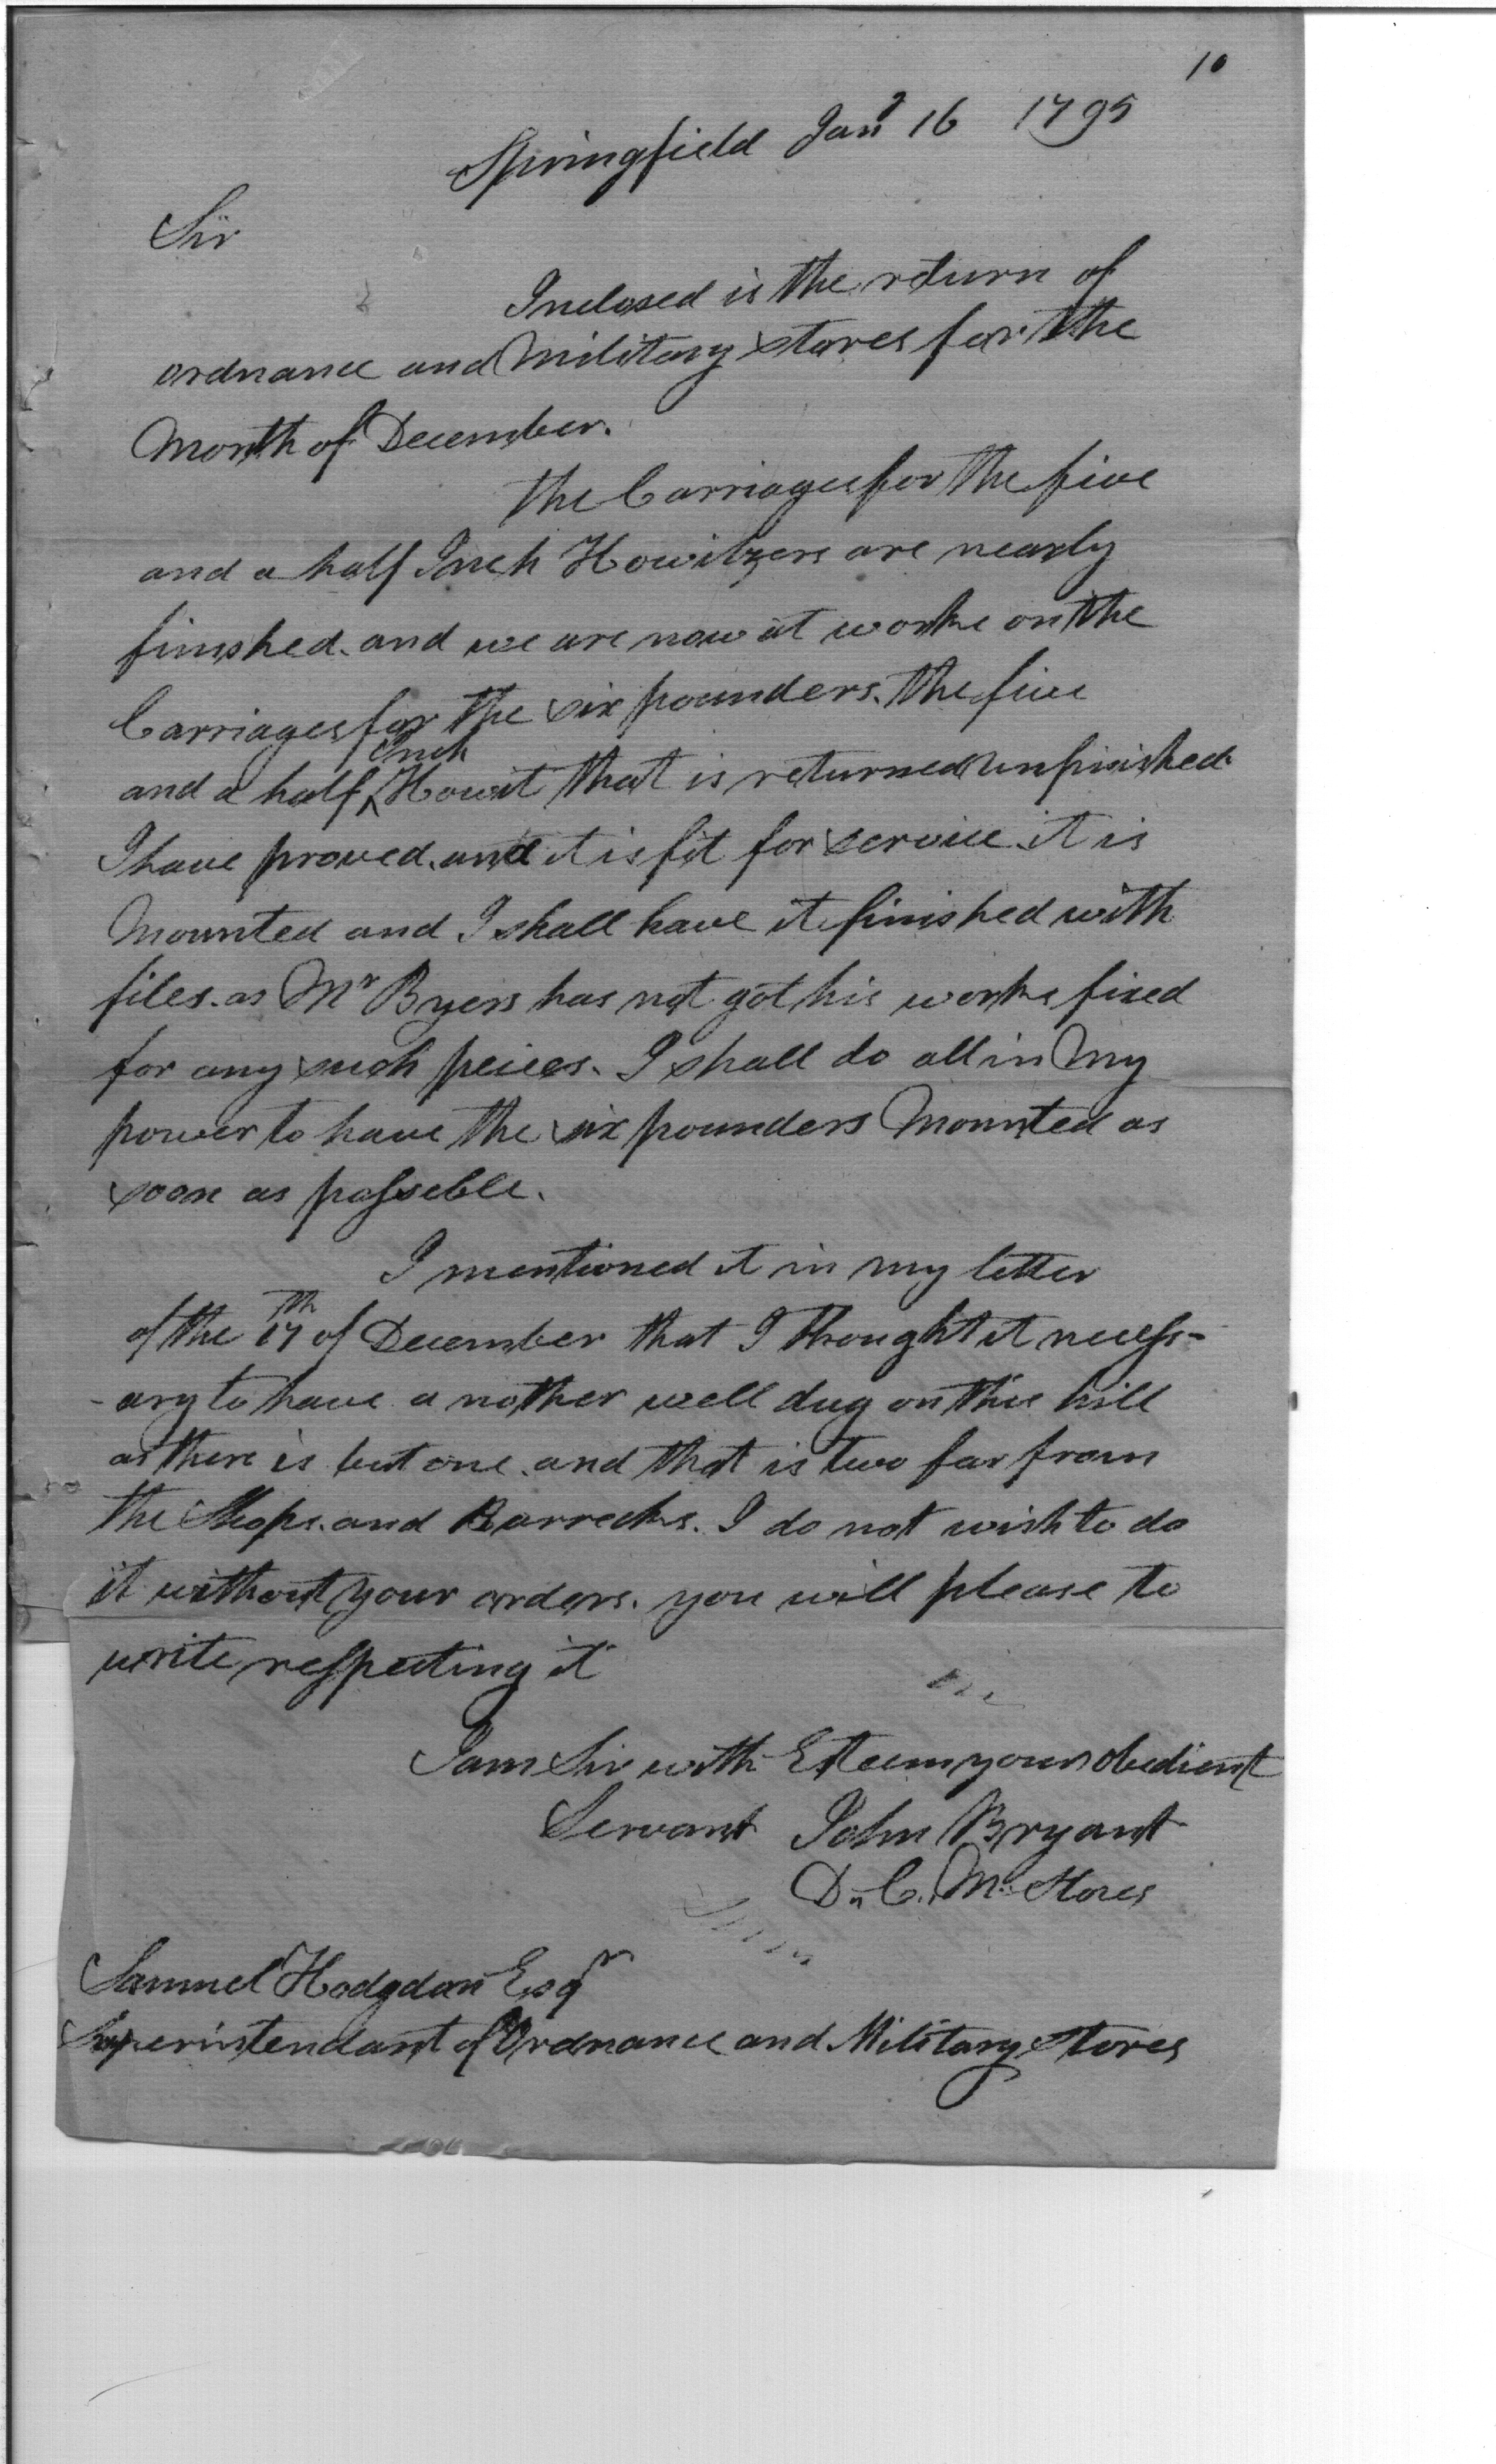 10
Springfield Jany 16 1795
Sir
Inclosed is the return of
ordnance and Military stores for the
Month of December.
the Carriages for the five
and a half Inch Howitzers are nearly
finished. and we are now at worke on the
Carriages for the six pounders. the five
and a half Inch Howit that is returned unfinished
I have proved. and it is fit for service. it is
Mounted and I shall have it finished with
files. as Mr Byers has not got his works fixed
for any such peices. I shall do all in My
power to have the six pounders Mounted as
soon as posseble.
I mentioned it in my letter
of the 17th of December that I thought it necess-
-ary to have a nother well dug on this hill
as there is but one. and that is two far from
the Shops. and Barrecks. I do not wish to do
it without your orders. you will please to
write respecting it
I am Sir with Esteem your obedient
Servant John Bryant
D. C. M. Stores
Samuel Hodgdon Esqr
Superintendant of Ordnance and Military Stores